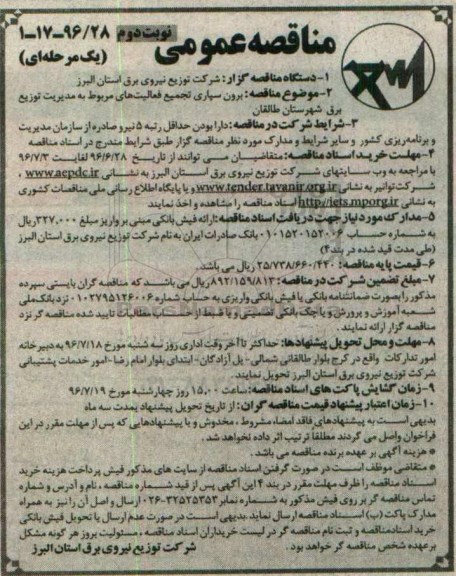 مناقصه عمومی
نوبت دوم ۹۶/۲۸-۱۷-۱
(یک مرحله‌ای)
۱- دستگاه مناقصه گزار: شرکت توزیع نیروی برق استان البرز
۲- موضوع مناقصه: برون سپاری تجمیع فعالیت‌های مربوط به مدیریت توزیع
برق شهرستان طالقان
۳- شرایط شرکت در مناقصه: دارا بودن حداقل رتبه ۵ نیرو صادره از سازمان مدیریت
و برنامه‌ریزی کشور و سایر شرایط و مدارک مورد نظر مناقصه گزار طبق شرایط مندرج در اسناد مناقصه
۴- مهلت خرید اسناد مناقصه: متقاضیان می توانند از تاریخ ۹۶/۶/۲۸ لغایت ۹۶/۷/۳
با مراجعه به وب سایتهای شرکت توزیع نیروی برق استان البرز به نشانی www.aepdc.ir و
شرکت توانیر به نشانی www.tender.tavanir.org.ir و یا پایگاه اطلاع رسانی ملی مناقصات کشوری
به نشانی http://iets.mporg.ir اسناد مناقصه را مشاهده و اخذ نمایند.
۵- مدارک مورد نیاز جهت دریافت اسناد مناقصه: ارائه فیش بانکی مبنی بر واریز مبلغ ۳۲۷,۰۰۰ ریال
به شماره حساب ۰۱۰۱۵۲۰۱۵۲۰۰۶ بانک صادرات ایران به نام شرکت توزیع نیروی برق استان البرز
(طی مدت قید شده در بند ۴)
۶- قیمت پایه مناقصه: ۲۵/۷۳۸/۶۶۰/۴۴۰ ریال می باشد.
۷- مبلغ تضمین شرکت در مناقصه: ۸۹۲/۱۵۹/۸۱۳ ریال می باشد که مناقصه گران بایستی سپرده
مذکور را بصورت ضمانتنامه بانکی یا فیش بانکی واریزی به حساب شماره ۰۱۰۲۷۹۵۱۲۶۰۰۶ نزد بانک ملی
شعبه آموزش و پرورش و یا چک بانکی تضمینی و یا ضبط از حساب مطالبات تایید شده مناقصه گر نزد
مناقصه گزار ارائه نمایند.
۸- مهلت و محل تحویل پیشنهادها: حداکثر تا آخر وقت اداری روز سه شنبه مورخ ۹۶/۷/۱۸ به دبیرخانه
امور تدارکات واقع در کرج بلوار طالقانی شمالی- پل آزادگان- ابتدای بلوار امام رضا- امور خدمات پشتیبانی
شرکت توزیع نیروی برق استان البرز تحویل نمایند.
۹- زمان گشایش پاکت های اسناد مناقصه: ساعت ۱۵,۰۰ روز چهارشنبه مورخ ۹۶/۷/۱۹
۱۰- زمان اعتبار پیشنهاد قیمت مناقصه گران: از تاریخ تحویل پیشنهاد بمدت سه ماه
بدیهی است به پیشنهادهای فاقد امضاء، مشروط، مخدوش و یا پیشنهادهایی که پس از مهلت مقرر در این
فراخوان واصل می گردند مطلقا ترتیب اثر داده نخواهد شد.
* هزینه آگهی بر عهده برنده مناقصه می باشد.
* متقاضی موظف است در صورت گرفتن اسناد مناقصه از سایت های مذکور فیش پرداخت هزینه خرید
اسناد مناقصه را ظرف مهلت مقرر در بند ۴ این آگهی پس از قید شماره مناقصه، نام و آدرس و شماره
تماس مناقصه گر بر روی فیش مذکور به شماره نمابر ۳۲۵۲۵۳۵۳-۰۲۶ ارسال و اصل آن را نیز به همراه
مدارک پاکت (ب) اسناد مناقصه ارسال نماید. بدیهی است در صورت عدم ارسال یا تحویل فیش بانکی
خرید اسناد مناقصه و ثبت نام مناقصه گر در لیست خریداران اسناد مناقصه، مسئولیت بروز هر گونه مشکل
بر عهده شخص مناقصه گر خواهد بود.
شرکت توزیع نیروی برق استان البرز